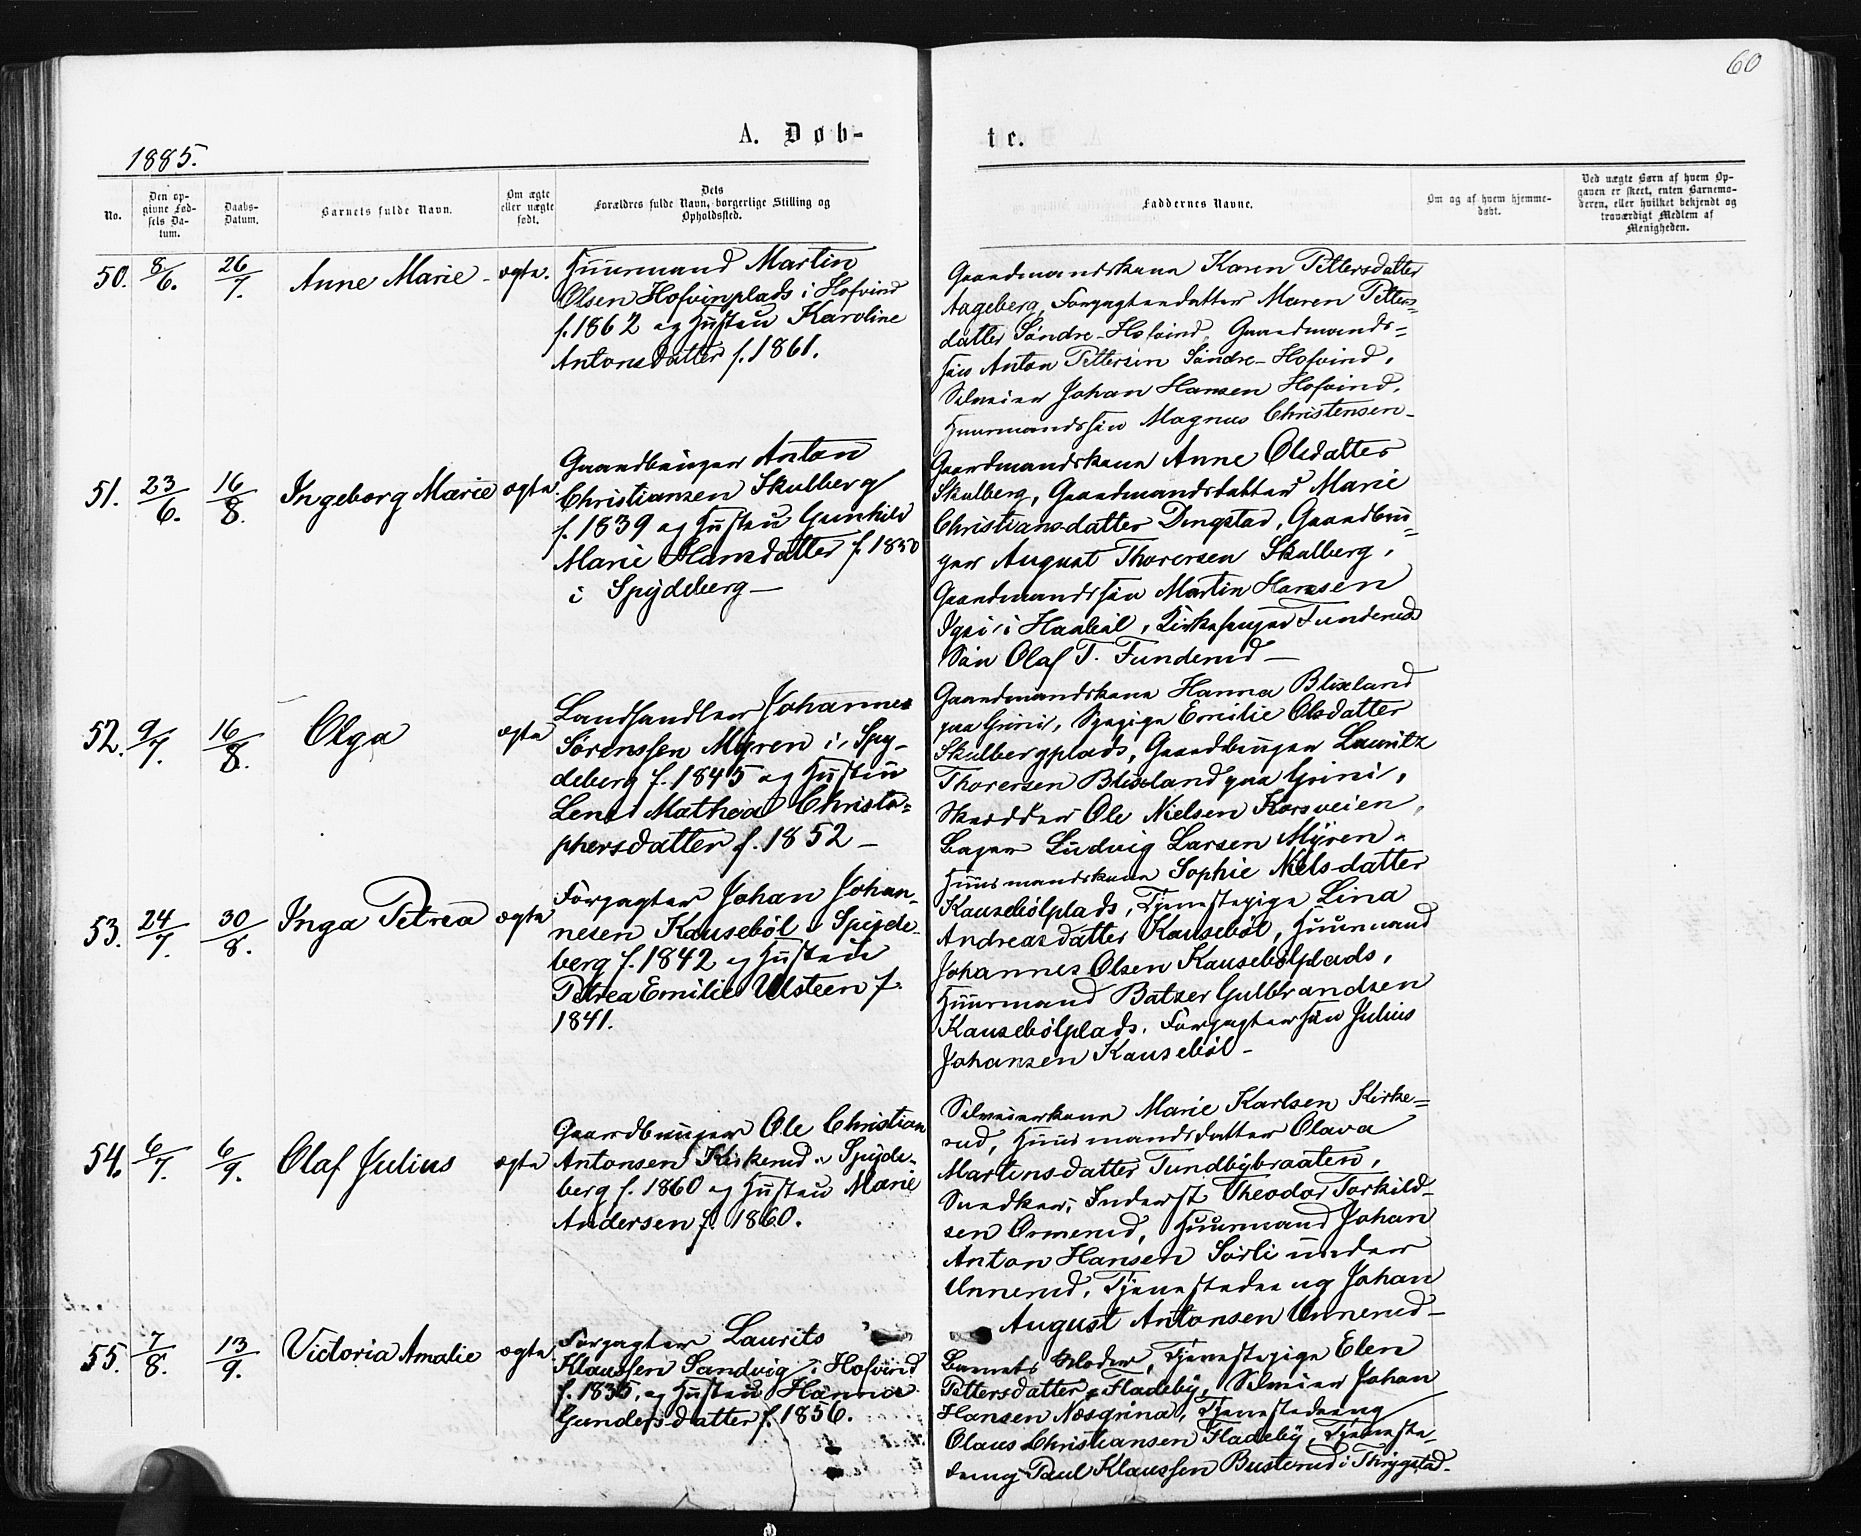 60
1885.
A. Døb-
te.
No.
Den op-
givne Fød-
sels Da-
tum.
Daabs-
Datum.
Barnets fulde Navn.
Om ægte
eller uægte
født.
Dets
Forældres fulde Navn, borgerlige Stilling og
Opholdssted.
Faddernes Navne.
Om og af hvem hjemme-
døbt.
Ved uægte Børn af hvem Op-
gaven er skeet, enten Barnemo-
deren, eller hvilket bekjendt og
troværdigt Medlem af
Menigheden.
50. 8/6. 26/7. Anne Marie - ægte.
Huusmand Martin
Olsen Hofvinplads i Hofvind
f. 1862 og Hustru Karoline
Antonsdatter f. 1861.
Gaardmandskone Karen Pettersdatter
Aageberg, Forpagterdatter Maren Petters=
datter Söndre-Hofvind, Gaardmands=
søn Anton Pettersen Söndre-Hofvind,
Selveier Johan Hansen Hofvind,
Huusmandssøn Magnus Christensen-
51. 23/6. 16/8. Ingeborg Marie ægte
Gaardbruger Anton
Christiansen Skulberg
f. 1839 og Hustru Gunhild
Marie Hansdatter f. 1850
i Spydeberg-
Gaardmandskone Anne Olsdatter
Skulberg, Gaardmandsdatter Marie
Christiansdatter Dingstad, Gaardbru=
ger August Thoresen Skulberg,
Gaardmandssøn Martin Hansen
i Haabøl, Kirkesanger Funderuds
Søn Olaf T. Funderud-
52. 9/7. 16/8. Olga ægte
Landhandler Johannes
Sörenssen Myren i Spy-
deberg f. 1845 og Hustru
Lene Mathea Christo=
phersdatter f. 1852-
Gaardmandskone Hanna Blixland
paa Grini, Pige Emilie Olsdatter
Skulbergplads, Gaardbruger Lauritz
Thorersen Blixland paa Grini,
Skrædder Ole Nielsen Korsveien,
Bager Ludvig Larsen Myren-
53. 24/7. 30/8. Inga Petrea ægte
Forpagter Johan Johan-
nesen Kausebøl i Spyde-
berg f. 1842 og Hustru
Petrea Emilie Ulsteen f.
1841.
Huusmandskone Sophie Nilsdatter
Kausebølplads, Tjenestepige Lina
Andreasdatter Kausebøl, Huusmand
Johannes Olsen Kausebølplads,
Huusmand Batzer Gulbrandsen
Kausebølplads, Forpagtersøn Julius
Johansen Kausebøl-
54. 6/7. 6/9. Olaf Julius ægte
Gaardbruger Ole Christian
Antonsen Kirkerud i Spyde-
berg f. 1860 og Hustru Marie
Andersen f. 1860.
Selveierkone Marie Karlsen Kirke=
rud, Huusmandsdatter Olava
Martinsdatter Tundbybraaten,
Snedker, Inderst Theodor Torkild-
sen Ormerud, Huusmand Johan
Anton Hansen Sörli under
Unnerud, Tjenestedreng Johan
August Antonsen Unnerud-
55. 7/8. 13/9. Victoria Amalie ægte
Forpagter Laurits
Klaussen Sandvig i Hofvind
f. 1835, og Hustru Hanna
Gundersdatter f. 1856.
Barnets Moder, Tjenestepige Elen
Pettersdatter Fladeby, Selveier Johan
Hansen Næsgrina, Tjenestedreng
Olaus Christiansen Fladeby, Tjeneste-
dreng Paul Klaussen Busterud i Thrygstad-